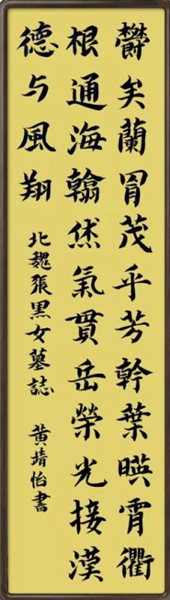 欝矣蘭胄茂乎芳幹葉暎霄衢
根通海翰倐氣貫岳榮光接漢
德与風翔
北魏張黑女墓誌 黄靖怡書